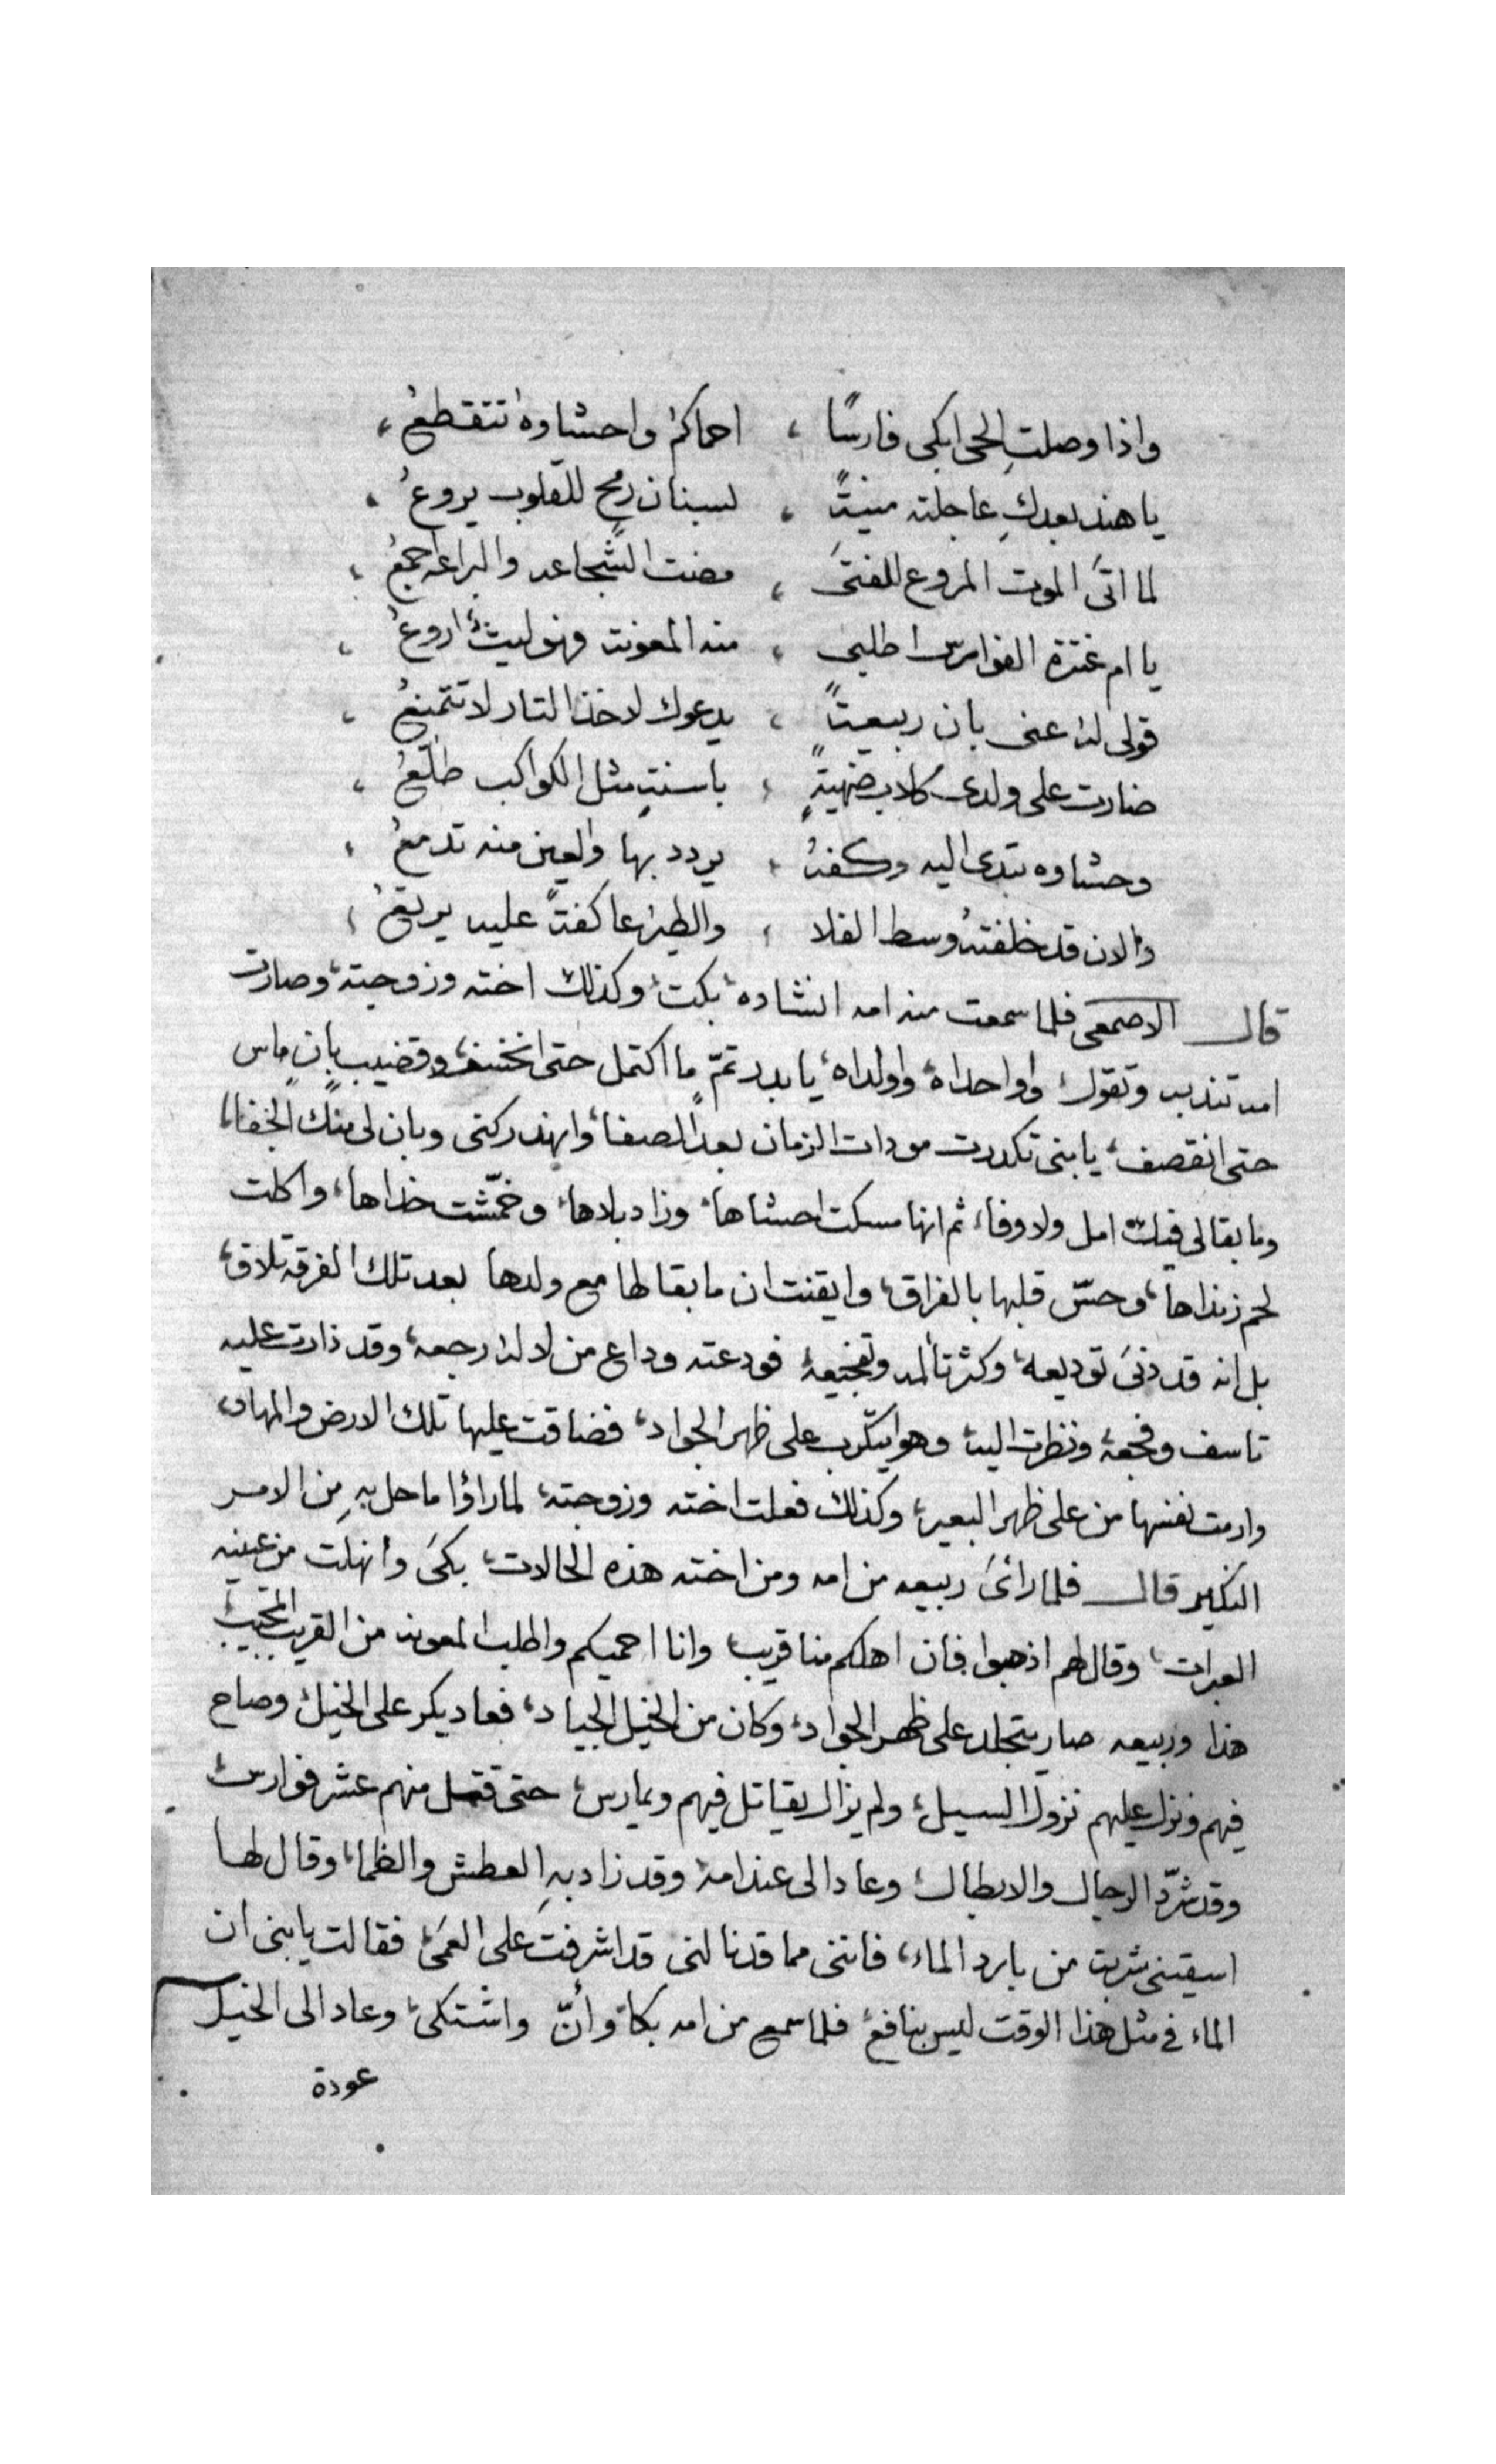 واذا وصلتِ الحى ابكى فارسًا ، احماكمُ واحشاوهُ تتقطعُ ،
يا هند بعدكِ عاجلته منيةً ، لسنان رمحٍ للقلوب يروعُ ،
لما اتىَ الموت المروع للفتىَ ، مضت الشجاعه والبراعه اجمعُ ،
يا ام عنترة الفوارس اطلبى ، منه المعونه فهو ليثٌ اروعُ ،
قولى له عنى بان ربيعةً ، يدعوك لاخذ التار لا تتمنعُ ،
ضارت على ولدى كلاب ضهيةٍ ، باسنةٍ مثل الكواكب طلّعُ ،
وحشاوه تبدى اليه وكفهُ ، يردد بها والعين منه تدمعُ ،
والان قد خلفتهُ وسط الفلا ، والطيرُ عاكفةً عليه يرتعُ ،
قال الاصمعى فلما سمعت منه امه انشاده، بكت، وكذلك اخته وزوجته، وصارت
امه تندب وتقول، واواحداه، واولداه، يا بدر تمّ ما اكتمل حتى انخسف، وقضيب بانٍ ماس
حتى انقصف، يا بنى تكدرت مودات الزمان بعد الصفا، وانهد ركنى وبان لى منك الخفا،
وما بقا لى فيك امل ولا وفا، ثم انها مسكت احشاها، وزاد بلاها، وخمّشت خداها، واكلت
لحم زنداها، وحسّ قلبها بالفراق، وايقنت ان ما بقا لها مع ولدها بعد تلك الفرقه تلاق،
بل انه قد دنىَ توديعه، وكثر تألمه وتفجيعه، فودعته وداع من لا له رجعه، وقد زادت عليه
تاسف وفجعه، ونظرت اليه، وهو يتكّرب على ظهر الجواد، فضاقت عليها تلك الارض والمهاد،
وارمت نفسها من على ظهر البعير، وكذلك فعلت اخته وزوجته، لما راؤا ما حل بهِ مِن الامر
النكير قال فلما رائىَ ربيعه من امه ومن اخته هذه الحالات، بكىَ وانهلت من عينيه
العبرات، وقال لهم اذهبوا فان اهلكم منا قريب، وانا احميكم واطلب المعونه من القريب المجيب،
هذا وربيعه صار يتجلد على ظهر الجواد، وكان من الخيل الجياد، فعاد يكر على الخيل، وصاح
فيهم ونزل عليهم نزول السيل، ولم يزال يقاتل فيهم ويمارس، حتى قتل منهم عشر فوارس،
وقد شرّد الرجال والابطال، وعاد الى عند امه، وقد زاد بهِ العطش والظما، وقال لها
اسقينى شربة من بارد الماء، فانتى مما قد نالنى قد اشرفت على العمىَ، فقالت يا بنى ان
الماء فى مثل هذا الوقت ليس بنافع، فلما سمع من امه بكا، وأنّ واشتكى، وعاد الى الخيل
عودة